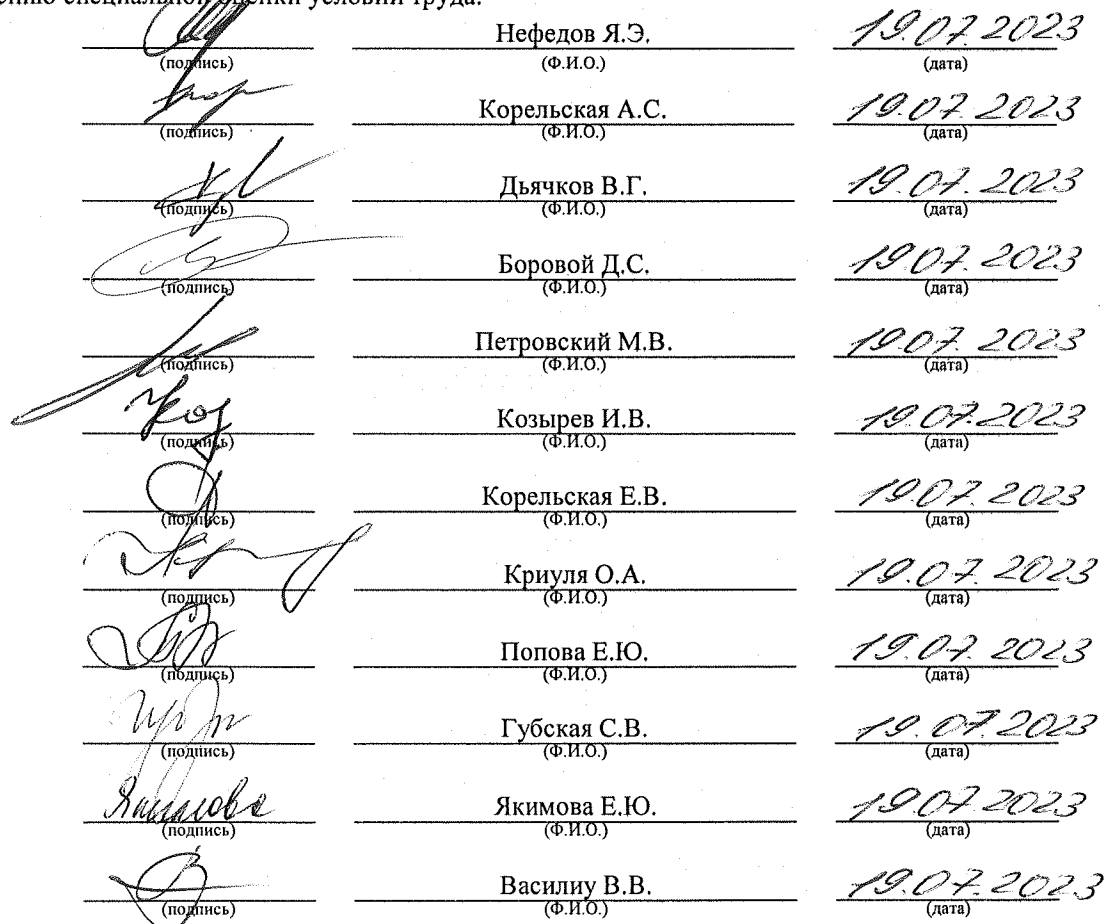 специальной оценки условий труда.
Нефедов Я.Э. 19.07.2023
(подпись) (Ф.И.О.) (дата)
Корельская А.С. 19.07.2023
(подпись) (Ф.И.О.) (дата)
Дьячков В.Г. 19.07.2023
(подпись) (Ф.И.О.) (дата)
Боровой Д.С. 19.07.2023
(подпись) (Ф.И.О.) (дата)
Петровский М.В. 19.07.2023
(подпись) (Ф.И.О.) (дата)
Козырев И.В. 19.07.2023
(подпись) (Ф.И.О.) (дата)
Корельская Е.В. 19.07.2023
(подпись) (Ф.И.О.) (дата)
Криуля О.А. 19.07.2023
(подпись) (Ф.И.О.) (дата)
Попова Е.Ю. 19.07.2023
(подпись) (Ф.И.О.) (дата)
Губская С.В. 19.07.2023
(подпись) (Ф.И.О.) (дата)
Якимова Е.Ю. 19.07.2023
(подпись) (Ф.И.О.) (дата)
Василиу В.В. 19.07.2023
(подпись) (Ф.И.О.) (дата)